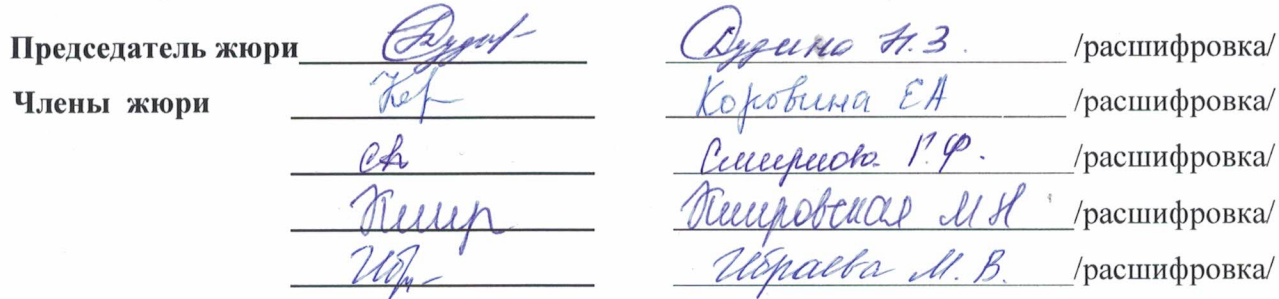 Председатель жюри Дудино Н.З. /расшифровка/
Члены жюри Коровина ЕА /расшифровка/
Смирнова Г.Ф. /расшифровка/
Жмировская МН /расшифровка/
Ибраева М.В. /расшифровка/